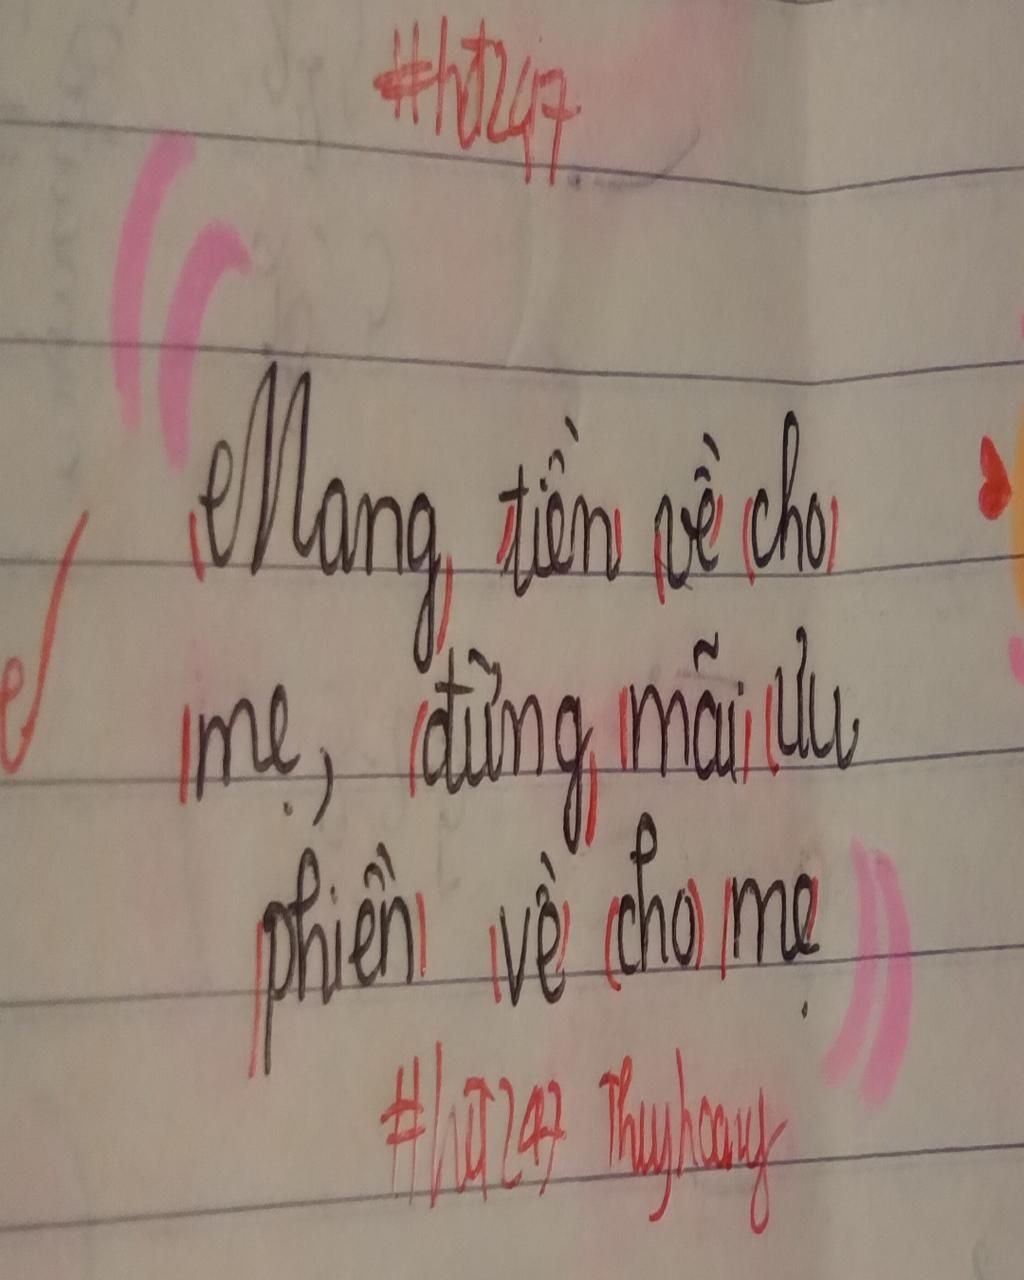 #hđ247
Mang tiền về cho
mẹ, đừng mãi ưu
phiền về cho mẹ
#hđ247 Thuyhoang